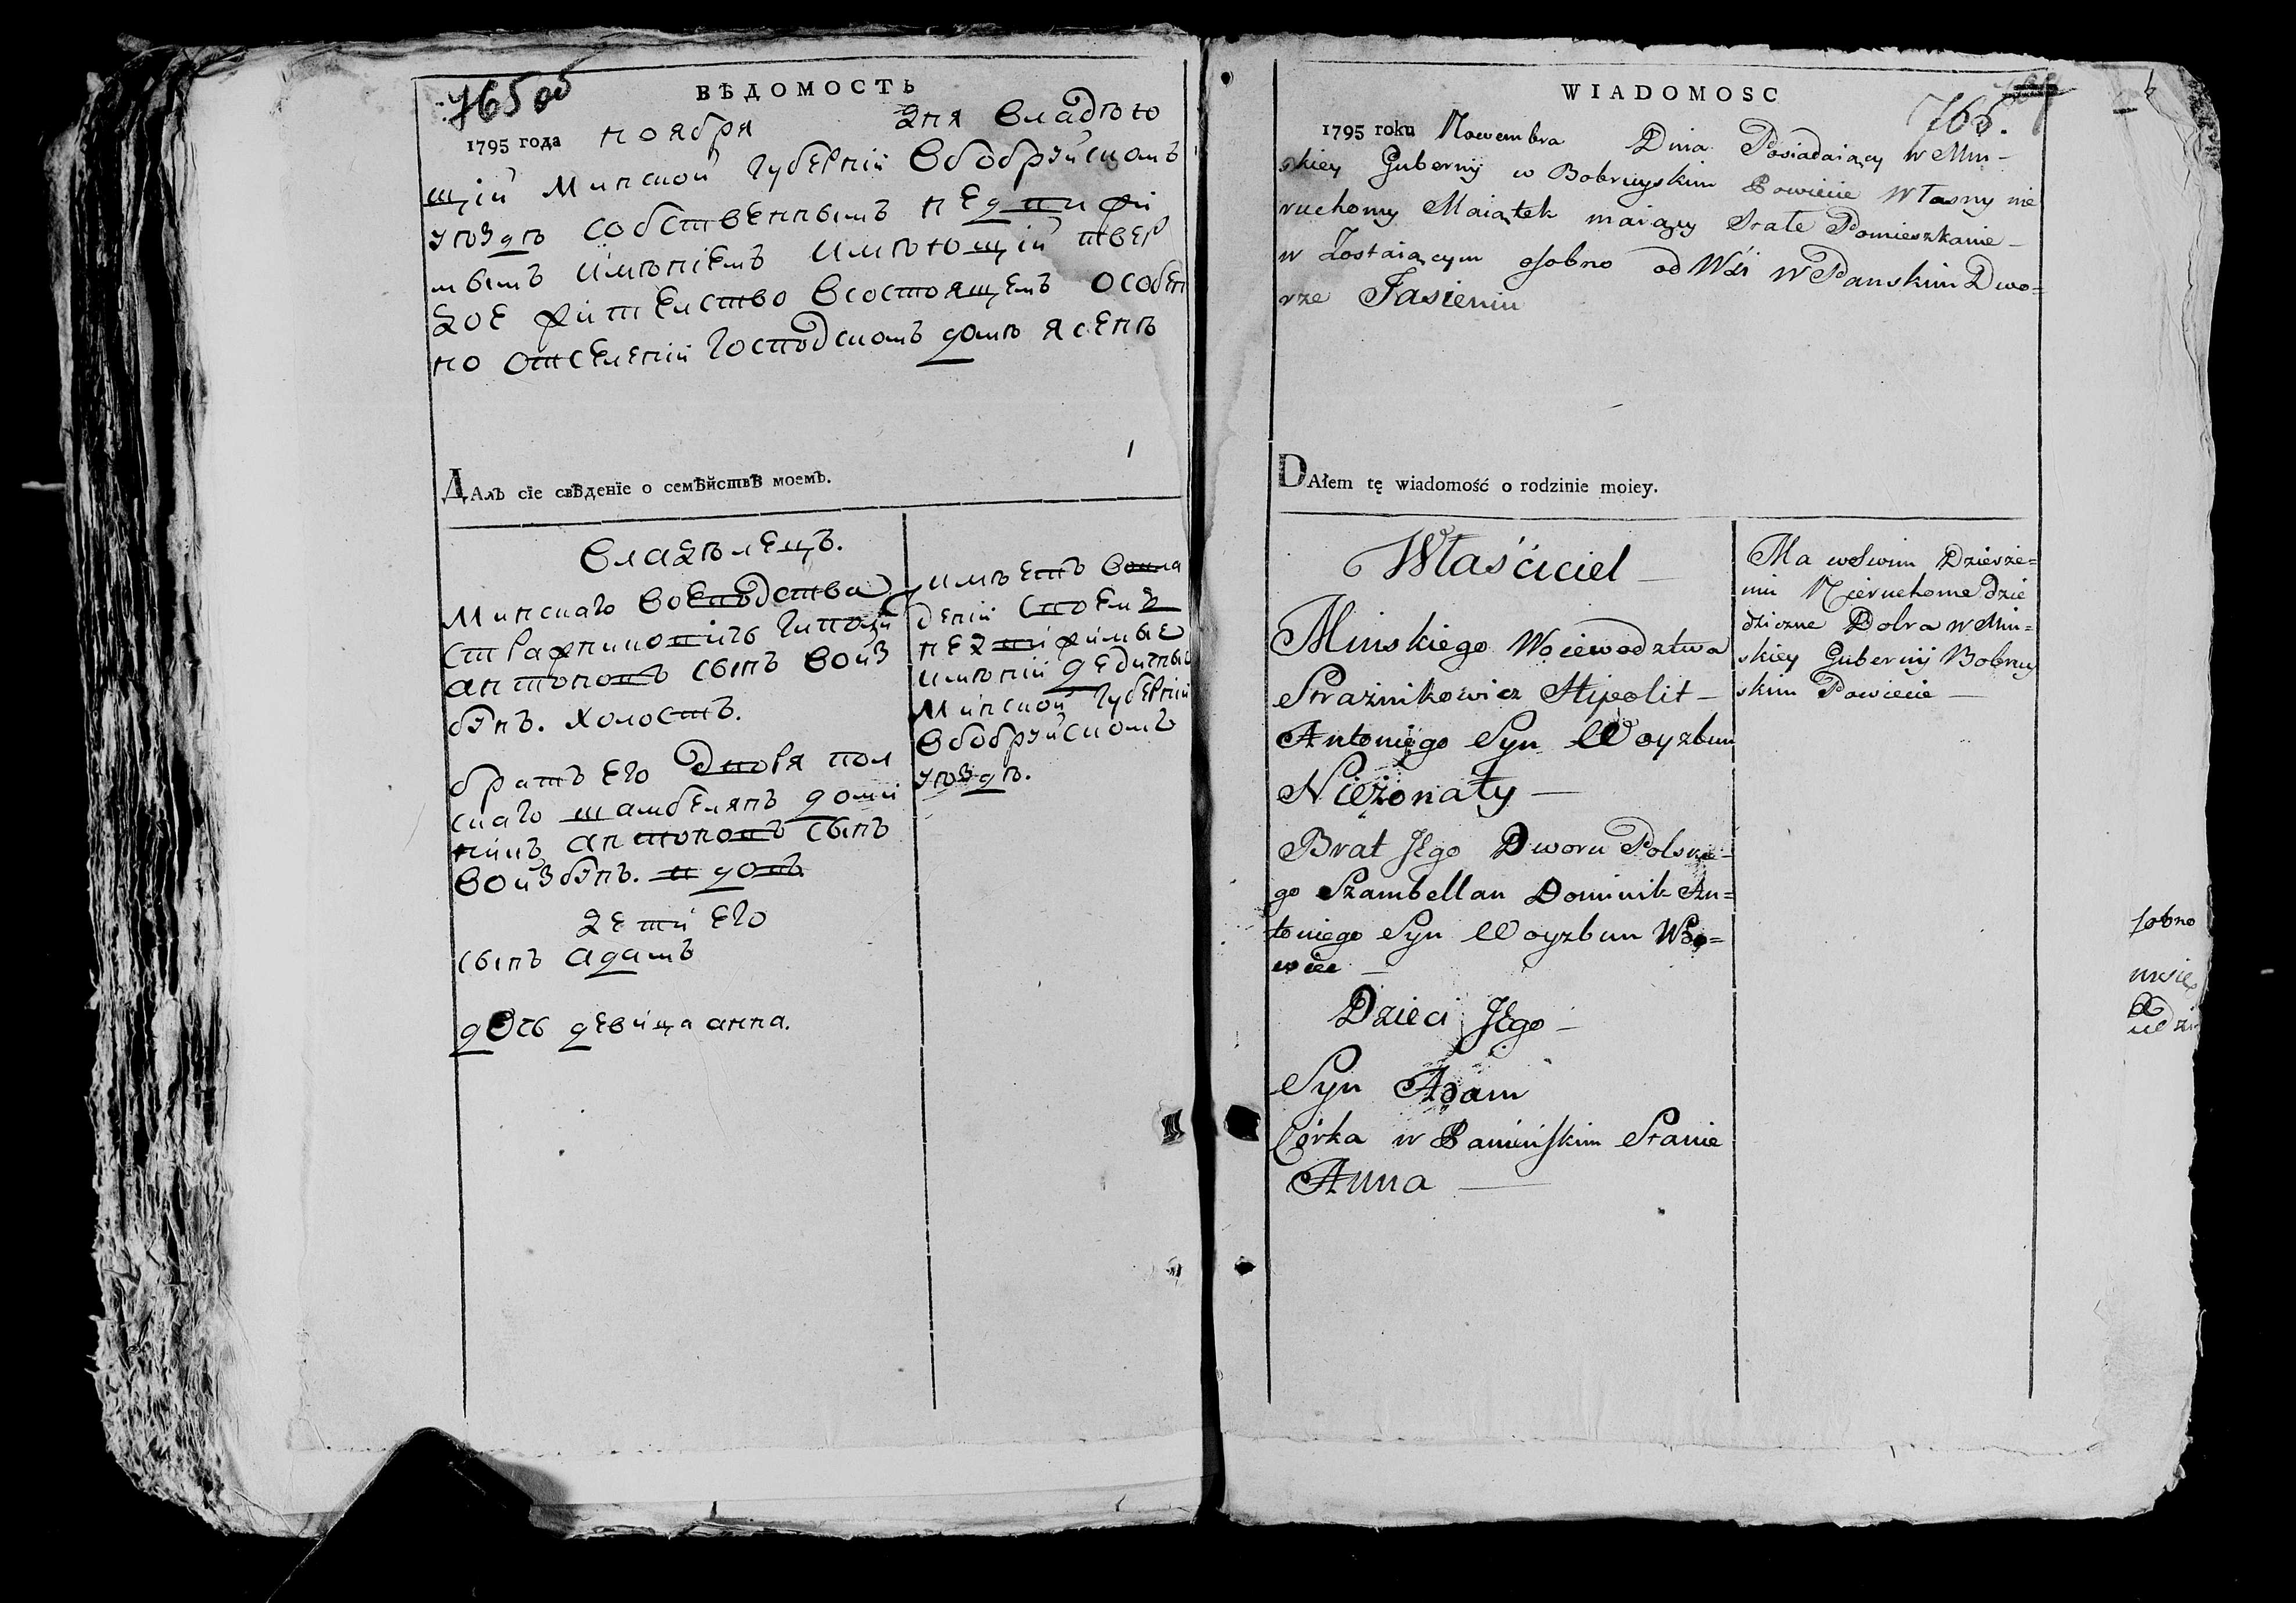 765 об
ВѢДОМОСТЬ
1795 года ноября дня владѣю
щій минской губерніи в бобруйскомъ
уѣздѣ собственнымъ недвижи
мымъ имѣніемъ имѣющій твер
дое жительство в состоящемъ особен
но от селеній господскомъ домѣ ясенѣ
Далъ сїе свѣденїе о семѣйствѣ моемъ.
владѣлецъ.
минскаго воеводства
стражниковичъ гиполи
антоновъ сынъ войз
бунъ. холостъ.
братъ его двора пол
скаго шамбелянъ доми
никъ антоновъ сынъ
войзбунъ. и довъ
дети его
сынъ адамъ
дочь девица анна.
имѣетъ во вла
дении своемъ
недвижимые
имѣнии дедичные
минской губернии
в бобруйскомъ
уѣздѣ.
WIADOMOSC
765.
1795 roku Nowembra Dnia Posiadaiący w Min-
skiey Gubernij w Bobruyskim Powiecie Własny nie
ruchomy Maiątek maiący Stałe Pomieszkanie
w Zostaiącym osobno od Wsi w Panskim Dwo=
rze Jasieniu
DAłem tę wiadomość o rodzinie moiey.
Właściciel
Minskiego Woiewodztwa
Strażnikowicz Hipolit
Antoniego Syn Woyzbun
Nieżonaty
Brat Jego Dworu Polskie-
go Szambellan Dominik An=
toniego Syn Woyzbun Wdo=
wiec
Dzieci Jego
Syn Adam
Córka w Panieńskim Stanie
Anna
Ma w Swim Dzierże=
niu Nieruchome dzie
dziczne Dobra w Min=
skiey Gubernij Bobruy
skim Powiecie
sobno